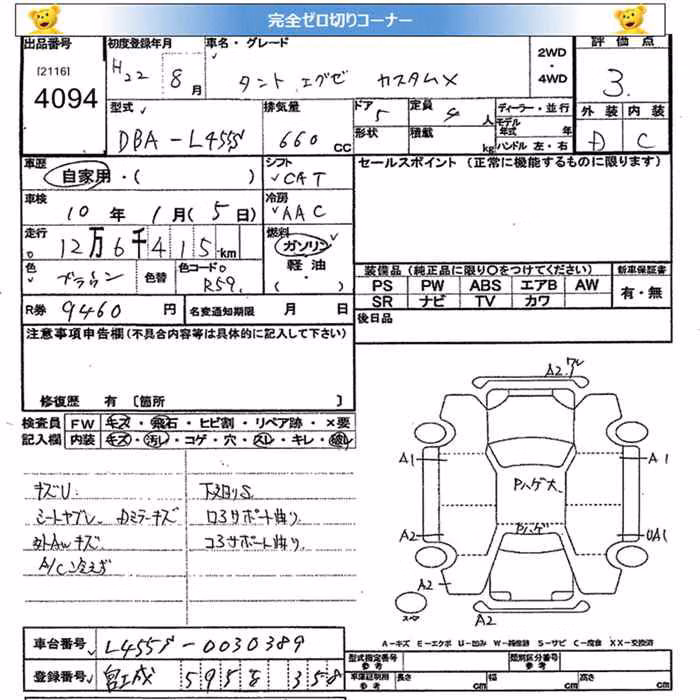 完全ゼロ切りコーナー
出品番号 初度登録年月 車名・グレード 2WD ・ 4WD 評価点
[2116] H22 8月 タント エグゼ カスタムX 3.
4094
型式 排気量 ドア 5 定員 4人 ディーラー・並行 外装 内装
DBA-L455S 660 CC 形状 積載 kg モデル年式 年 D C
ハンドル 左・右
車歴 シフト セールスポイント (正常に機能するものに限ります)
自家用・( ) CAT
車検 冷房
10年 1月(5日) AAC
走行 燃料
12万6千415km ガソリン
色 色替 色コード 軽油
ブラウン R59 ・( )
装備品 (純正品に限り○をつけてください) 新車保証書
PS PW ABS エアB AW 有・無
SR ナビ TV カワ
R券 9460円 名変通知期限 月 日 後日品
注意事項申告欄(不具合内容等は具体的に記入して下さい)
修復歴 有 〔箇所 〕
検査員 FW キズ・飛石・ヒビ割・リペア跡・×要
記入欄 内装 キズ・汚レ・コゲ・穴・スレ・キレ・破レ
キズU 下廻りS
シートヤブレ Dミラーキズ ロ3サポート曲り
外AWキズ コ3サポート曲り
A/C冷えず
A2.ワレ
A1 A1
Pハゲ大
Pハゲ
A2 UA1
A2
スペア A2
A-キズ E-エクボ U-凹み W-補修跡 S-サビ C-腐食 XX-交換済
車台番号 L455S-0030389
登録番号 宮城 5958 358
型式指定番号 類別区分番号
車庫証明用 長さ cm 幅 cm 高さ cm